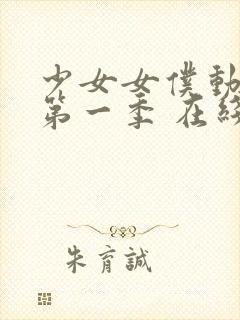 少女女僕動
第一季 在線
朱育誠